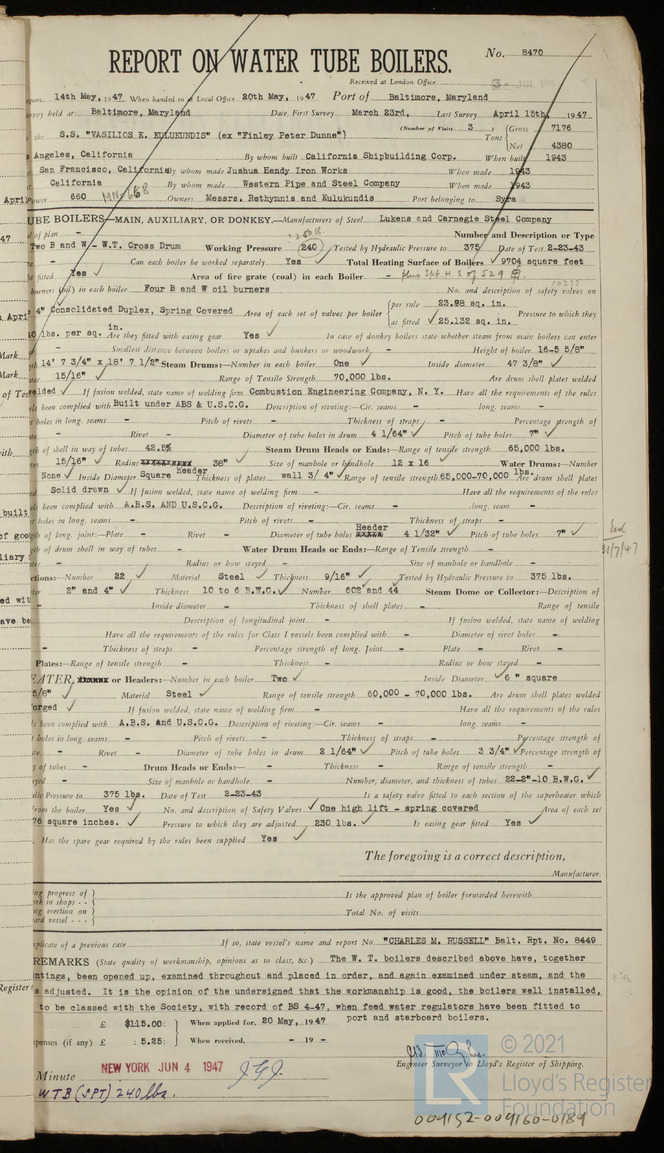 REPORT ON WATER TUBE BOILERS.
No. 8470
Received at London Office
14th May, 1947 When handed in at Local Office 20th May, 1947 Port of Baltimore, Maryland
held at Baltimore, Maryland Date, First Survey March 23rd, Last Survey April 15th, 1947
(Number of Visits 3 )
the S.S. "VASILIOS E. KULUKUNDIS" (ex "Finley Peter Dunne") Tons { Gross 7176
Net 4380
Angeles, California By whom built California Shipbuilding Corp. When built 1943
San Francisco, California By whom made Joshua Hendy Iron Works When made 1943
California By whom made Western Pipe and Steel Company When made 1943
660 MN 668 Owners Messrs. Rethymnis and Kulukundis Port belonging to Syra
UBE BOILERS—MAIN, AUXILIARY, OR DONKEY.—Manufacturers of Steel Lukens and Carnegie Steel Company
of plan - Number and Description or Type
Two B and W - W.T. Cross Drum Working Pressure 240 Tested by Hydraulic Pressure to 375 Date of Test 2-23-43
Can each boiler be worked separately Yes Total Heating Surface of Boilers 9704 square feet
fitted Yes Area of fire grate (coal) in each Boiler - plus Spt H S of 529
burners (oil) in each boiler Four B and W oil burners No. and description of safety valves on
4" Consolidated Duplex, Spring Covered Area of each set of valves per boiler { per rule 23.88 sq. in.
as fitted 25.132 sq. in. Pressure to which they
lbs. per sq. in. Are they fitted with easing gear Yes In case of donkey boilers state whether steam from main boilers can enter
- Smallest distance between boilers or uptakes and bunkers or woodwork - Height of boiler 16-5 5/8"
14' 7 3/4" x 18' 7 1/2" Steam Drums:—Number in each boiler One Inside diameter 47 3/8"
15/16" Range of Tensile Strength 70,000 lbs. Are drum shell plates welded
elded If fusion welded, state name of welding firm Combustion Engineering Company, N. Y. Have all the requirements of the rules
been complied with Built under ABS & U.S.C.G. Description of riveting:—Cir. seams - long. seams -
holes in long. seams - Pitch of rivets - Thickness of straps - Percentage strength of
- Rivet - Diameter of tube holes in drum 4 1/64" Pitch of tube holes 7"
of shell in way of tubes 42.5% Steam Drum Heads or Ends:—Range of tensile strength 65,000 lbs.
15/16" Radius 38" Size of manhole or handhole 12 x 16 Water Drums:—Number
None Inside Diameter Square header Thickness of plates wall 3/4" Range of tensile strength 65,000-70,000 lbs. Are drum shell plates
Solid drawn If fusion welded, state name of welding firm - Have all the requirements of the rules
been complied with A.B.S. AND U.S.C.G. Description of riveting:—Cir. seams - long. seam -
holes in long. seams - Pitch of rivets - Thickness of straps -
of long. joint:—Plate - Rivet - Diameter of tube holes Header 4 1/32" Pitch of tube holes 7"
of drum shell in way of tubes - Water Drum Heads or Ends:—Range of Tensile strength -
- Radius or how stayed - Size of manhole or handhole -
ctions:—Number 22 Material Steel Thickness 9/16" Tested by Hydraulic Pressure to 375 lbs.
2" and 4" Thickness 10 to 6 B.W.G. Number 602 and 44 Steam Dome or Collector:—Description of
Inside diameter - Thickness of shell plates - Range of tensile
Description of longitudinal joint - If fusion welded, state name of welding
Have all the requirements of the rules for Class I vessels been complied with - Diameter of rivet holes -
Thickness of straps - Percentage strength of long. Joint - Plate - Rivet -
Plates:—Range of tensile strength - Thickness - Radius or how stayed -
EATER, or Headers:—Number in each boiler Two Inside Diameter 6 " square
5/8" Material Steel Range of tensile strength 60,000 - 70,000 lbs. Are drum shell plates welded
orged If fusion welded, state name of welding firm - Have all the requirements of the rules
been complied with A.B.S. and U.S.C.G. Description of riveting:—Cir. seams - long. seams -
holes in long. seams - Pitch of rivets - Thickness of straps - Percentage strength of
- Rivet - Diameter of tube holes in drum 2 1/64" Pitch of tube holes 3 3/4" Percentage strength of
of tubes - Drum Heads or Ends:— - Thickness - Range of tensile strength -
- Size of manhole or handhole - Number, diameter, and thickness of tubes 22-2"-10 B.W.G.
Pressure to 375 lbs. Date of Test 2-23-43 Is a safety valve fitted to each section of the superheater which
from the boiler Yes No. and description of Safety Valves One high lift - spring covered Area of each set
76 square inches. Pressure to which they are adjusted 230 lbs. Is easing gear fitted Yes
Has the spare gear required by the rules been supplied Yes
The foregoing is a correct description,
Manufacturer.
progress of }
in shops - - } Is the approved plan of boiler forwarded herewith
erection on }
vessel - - - } Total No. of visits
plicate of a previous case If so, state vessel's name and report No. "CHARLES M. RUSSELL" Balt. Rpt. No. 8449
REMARKS (State quality of workmanship, opinions as to class, &c.) The W. T. boilers described above have, together
ntings, been opened up, examined throughout and placed in order, and again examined under steam, and the
s adjusted. It is the opinion of the undersigned that the workmanship is good, the boilers well installed,
to be classed with the Society, with record of BS 4-47, when feed water regulators have been fitted to
port and starboard boilers.
£ $115.00: When applied for, 20 May, 1947
penses (if any) £ : 5.25: When received, - 19 -
Engineer Surveyor to Lloyd's Register of Shipping.
Minute NEW YORK JUN 4 1947
WTB (SPT) 240 lbs.
© 2021
Lloyd's Register
Foundation
009152-009160-0189